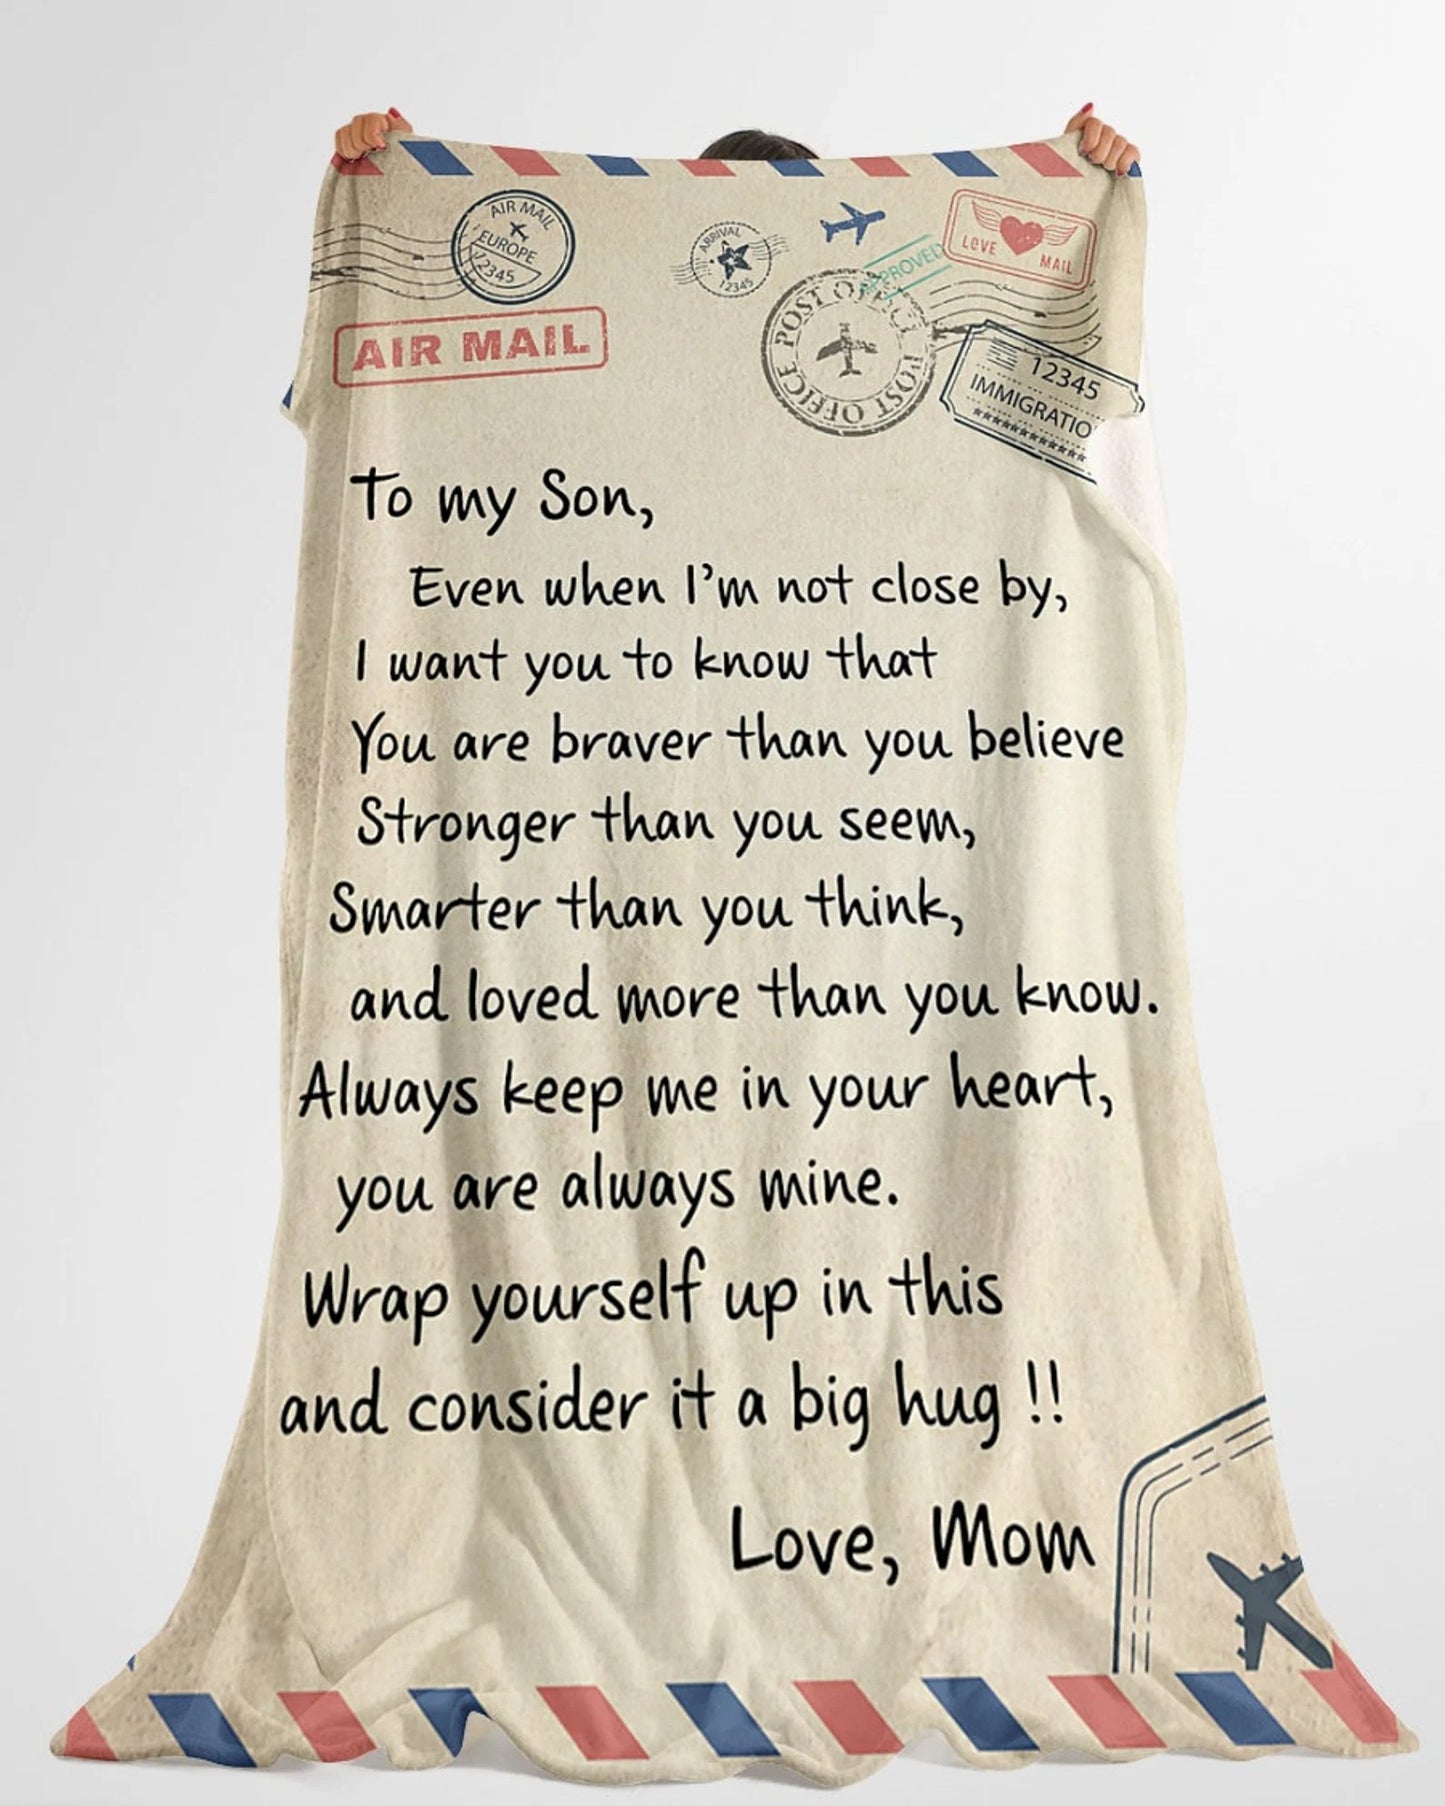 AIR MAIL
EUROPE
12345
ARRIVAL
12345
APPROVED
LOVE MAIL
AIR MAIL
POST OFFICE
POST OFFICE
12345
IMMIGRATIO
To my Son,
Even when I'm not close by,
I want you to know that
You are braver than you believe
Stronger than you seem,
Smarter than you think,
and loved more than you know.
Always keep me in your heart,
you are always mine.
Wrap yourself up in this
and consider it a big hug !!
Love, Mom